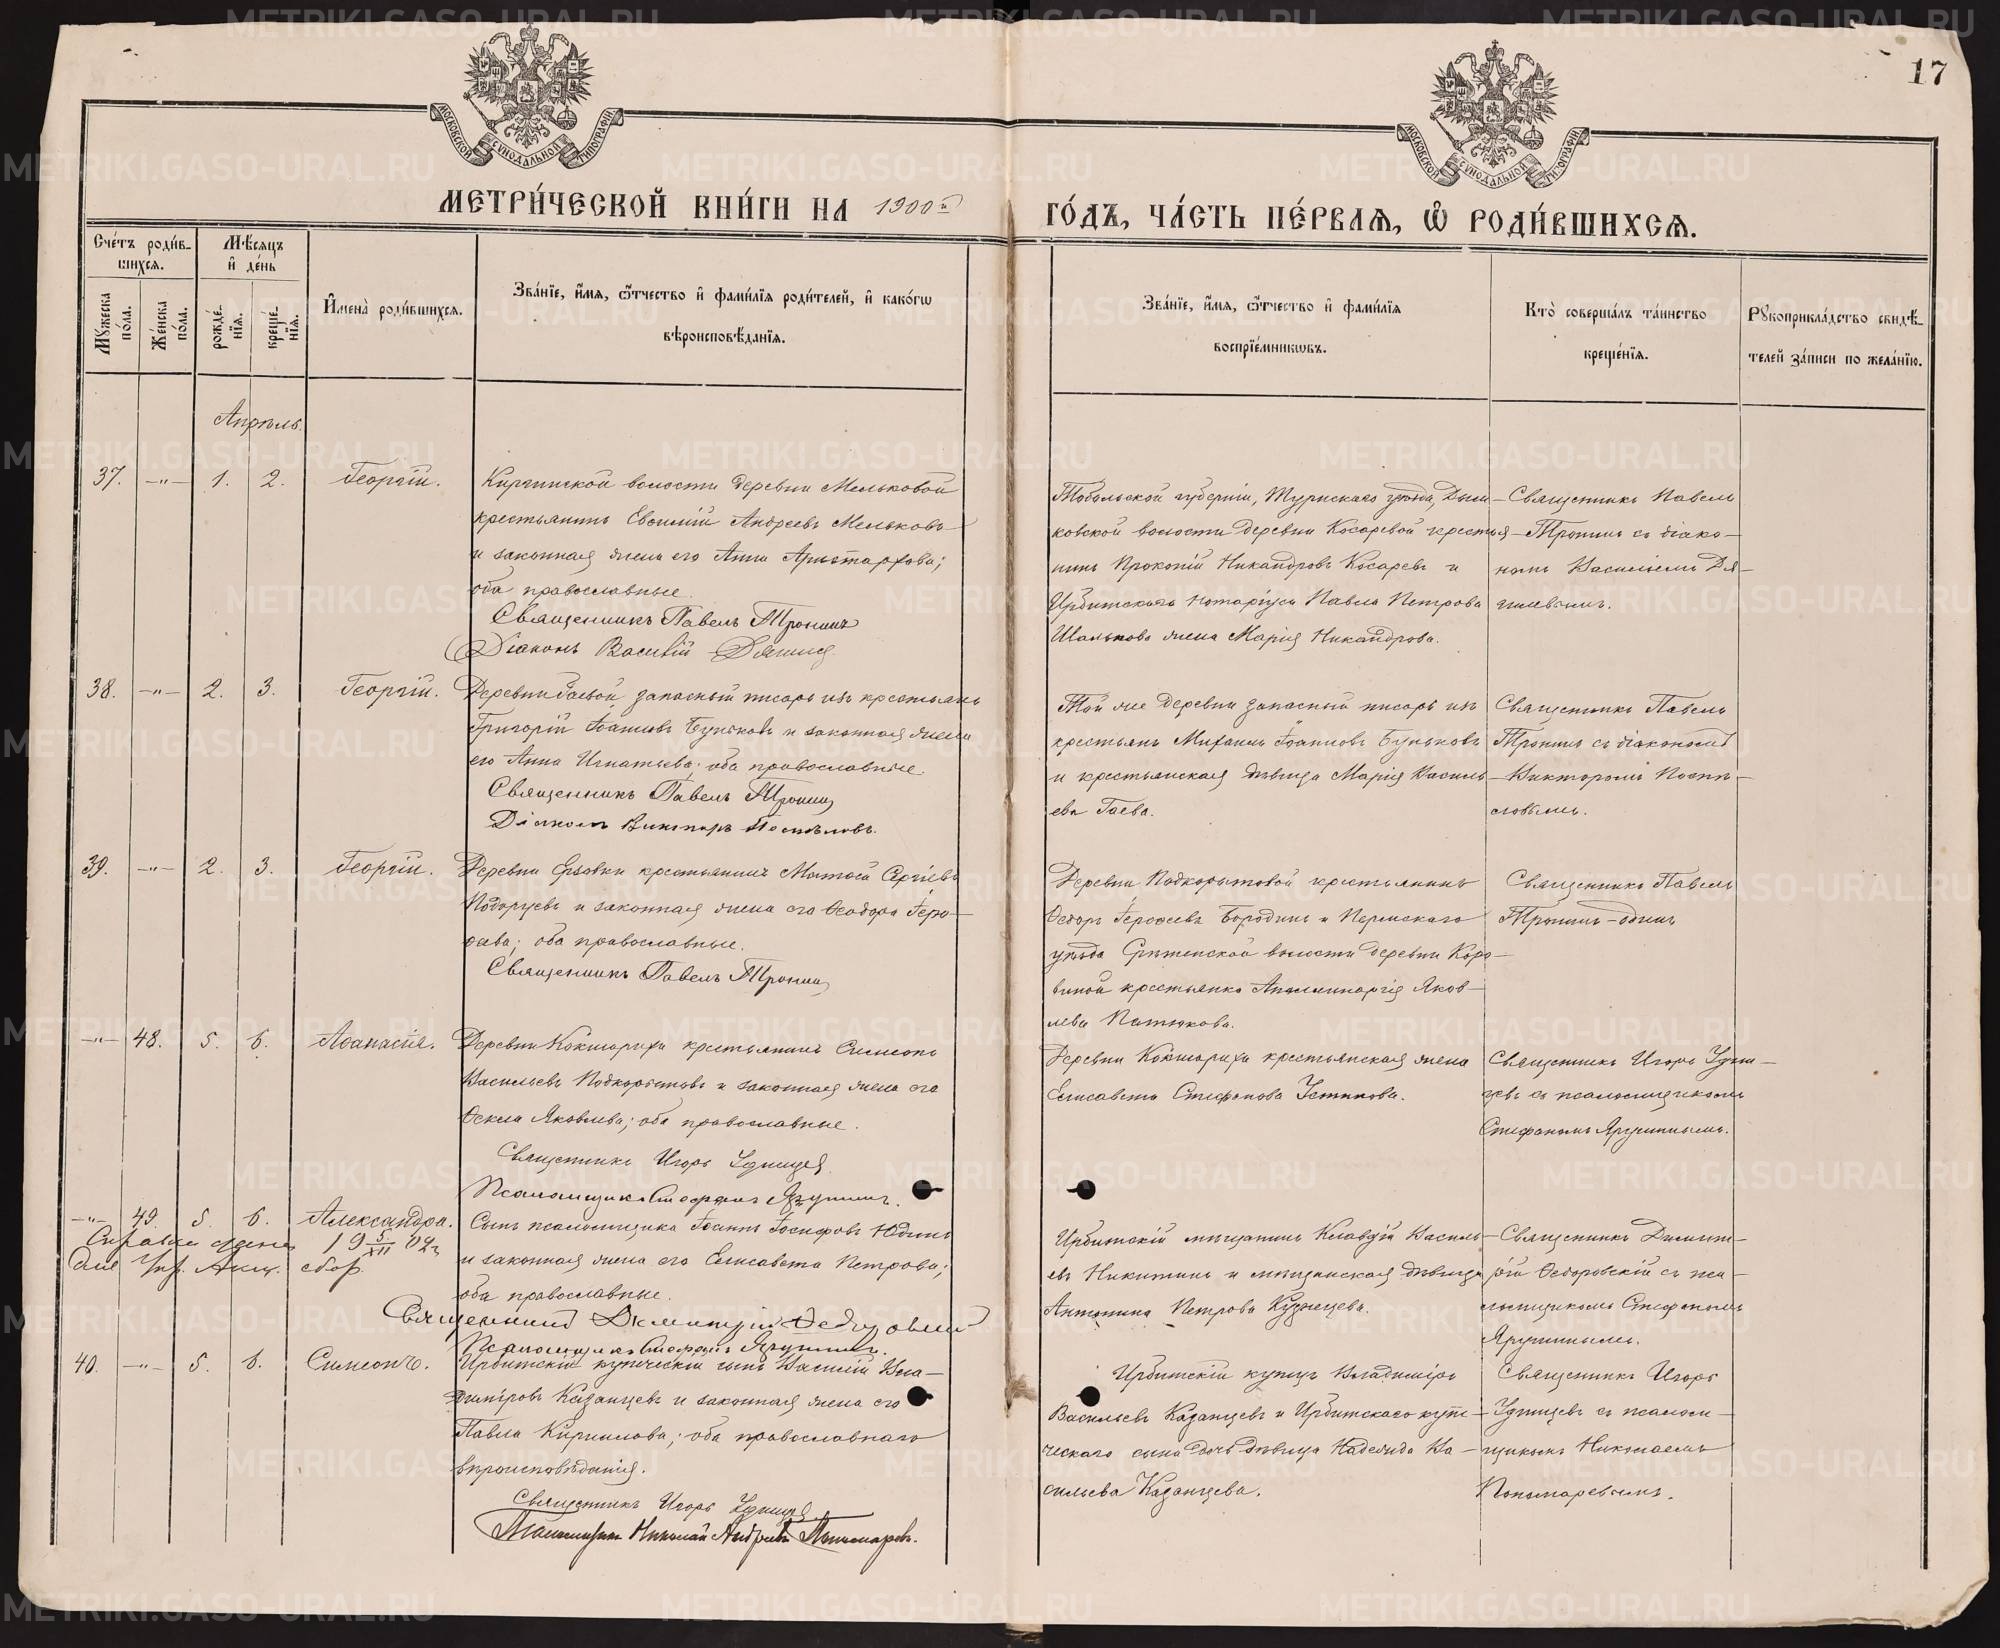 17
МОСКОВСКОЙ СѴНОДАЛЬНОЙ ТИПОГРАФІИ
МОСКОВСКОЙ СѴНОДАЛЬНОЙ ТИПОГРАФІИ
МЕТРИ́ЧЕСКОЙ КНИ́ГИ НА 1900й ГО́ДЪ, ЧА́СТЬ ПЕ́РВАѦ, Ѽ РОДИ́ВШИХСѦ.
Сче́тъ роди́в-
шихсѧ.
Мѣ́сѧцъ
и҆ де́нь
Мꙋжеска по́ла.
Же́нска по́ла.
рожде́-нїѧ.
креще́-нїѧ.
И҆мена̀ роди́вшихсѧ.
Зва́нїе, и҆́мѧ, ѻ҆́тчество и҆ фами́лїѧ роди́телей, и҆ како́гѡ
вѣроисповѣ́данїѧ.
Зва́нїе, и҆́мѧ, ѻ҆́тчество и҆ фами́лїѧ
воспрїе́мникѡвъ.
Кто̀ соверша́лъ та́инство
креще́нїѧ.
Рꙋкоприкла́дство свидѣ́-
телей за́писи по жела́нїю.
Апрѣль.
37. —"— 1. 2. Георгій.
Киргинской волости деревни Мельковой
крестьянинъ Евсигній Андреевъ Мельковъ
и законная жена его Анна Аристархова;
оба православные.
Священникъ Павелъ Тронинъ
Діаконъ Василій Дягилев
Тобольской губерніи, Туринскаго уѣзда, Дым-
ковской волости деревни Косаревой крестья-
нинъ Прокопій Никандровъ Косаревъ и
Ирбитскаго нотаріуса Павла Петрова
Шалькова жена Марія Никандрова.
Священникъ Павелъ
Тронинъ съ діако-
номъ Василіемъ Дя-
гилевымъ.
38. —"— 2. 3. Георгій.
Деревни Гаевой запасный писарь изъ крестьянъ
Григорій Іоанновъ Буньковъ и законная жена
его Анна Игнатьева; оба православные.
Священникъ Павелъ Тронинъ
Діаконъ Викторъ Поспѣловъ.
Той же деревни запасный писарь изъ
крестьянъ Михаилъ Іоанновъ Буньковъ
и крестьянская дѣвица Марія Василь-
ева Гаева.
Священникъ Павелъ
Тронинъ съ діакономъ
Викторомъ Поспѣ-
ловымъ.
39. —"— 2. 3. Георгій.
Деревни Ерзовки крестьянинъ Матѳей Сергіевъ
Подорцевъ и законная жена его Ѳеодора Геро-
ѳеева; оба православные.
Священникъ Павелъ Тронинъ
Деревни Подкорытовой крестьянинъ
Ѳедоръ Героѳеевъ Бородинъ и Пермскаго
уѣзда Срѣтенской волости деревни Коро-
виной крестьянка Аполлинарія Яков-
лева Патюкова.
Священникъ Павелъ
Тронинъ-одинъ
—"— 48. 5. 6. Аѳанасія.
Деревни Кокшариха крестьянинъ Симеонъ
Васильевъ Подкорытовъ и законная жена его
Ѳекла Яковлева; оба православные.
Священникъ Игорь Удинцев
Псаломщикъ Стефанъ Яргунинъ.
Деревни Кокшариха крестьянская жена
Елисавета Стефанова Устинова.
Священникъ Игорь Удин-
цевъ съ псаломщикомъ
Стефаномъ Яргунинымъ.
—"— 49. 5. 6. Александра.
19 5/XII 02
сбор.
Сынъ псаломщика Іоаннъ Іосифовъ Юдинъ
и законная жена его Елисавета Петрова;
оба православные.
Священникъ Димитрій Ѳедоровскій
Псаломщикъ Стефанъ Яргунинъ.
Ирбитскій мѣщанинъ Клавдій Василь-
евъ Никитинъ и мѣщанская дѣвица
Антонина Петрова Кузнецова.
Священникъ Димит-
рій Ѳедоровскій съ пса-
ломщикомъ Стефаномъ
Яргунинымъ.
40. —"— 5. 6. Симеонъ.
Ирбитскій купеческій сынъ Василій Вла-
диміровъ Казанцевъ и законная жена его
Павла Кириллова; оба православнаго
вѣроисповѣданія.
Священникъ Игорь Удинцев
Псаломщикъ Николай Андреевъ Пономаревъ.
Ирбитскій купецъ Владиміръ
Васильевъ Казанцевъ и Ирбитскаго купе-
ческаго сына дочь дѣвица Надежда Ва-
сильева Казанцева.
Священникъ Игорь
Удинцевъ съ псалом-
щикомъ Николаемъ
Пономаревымъ.